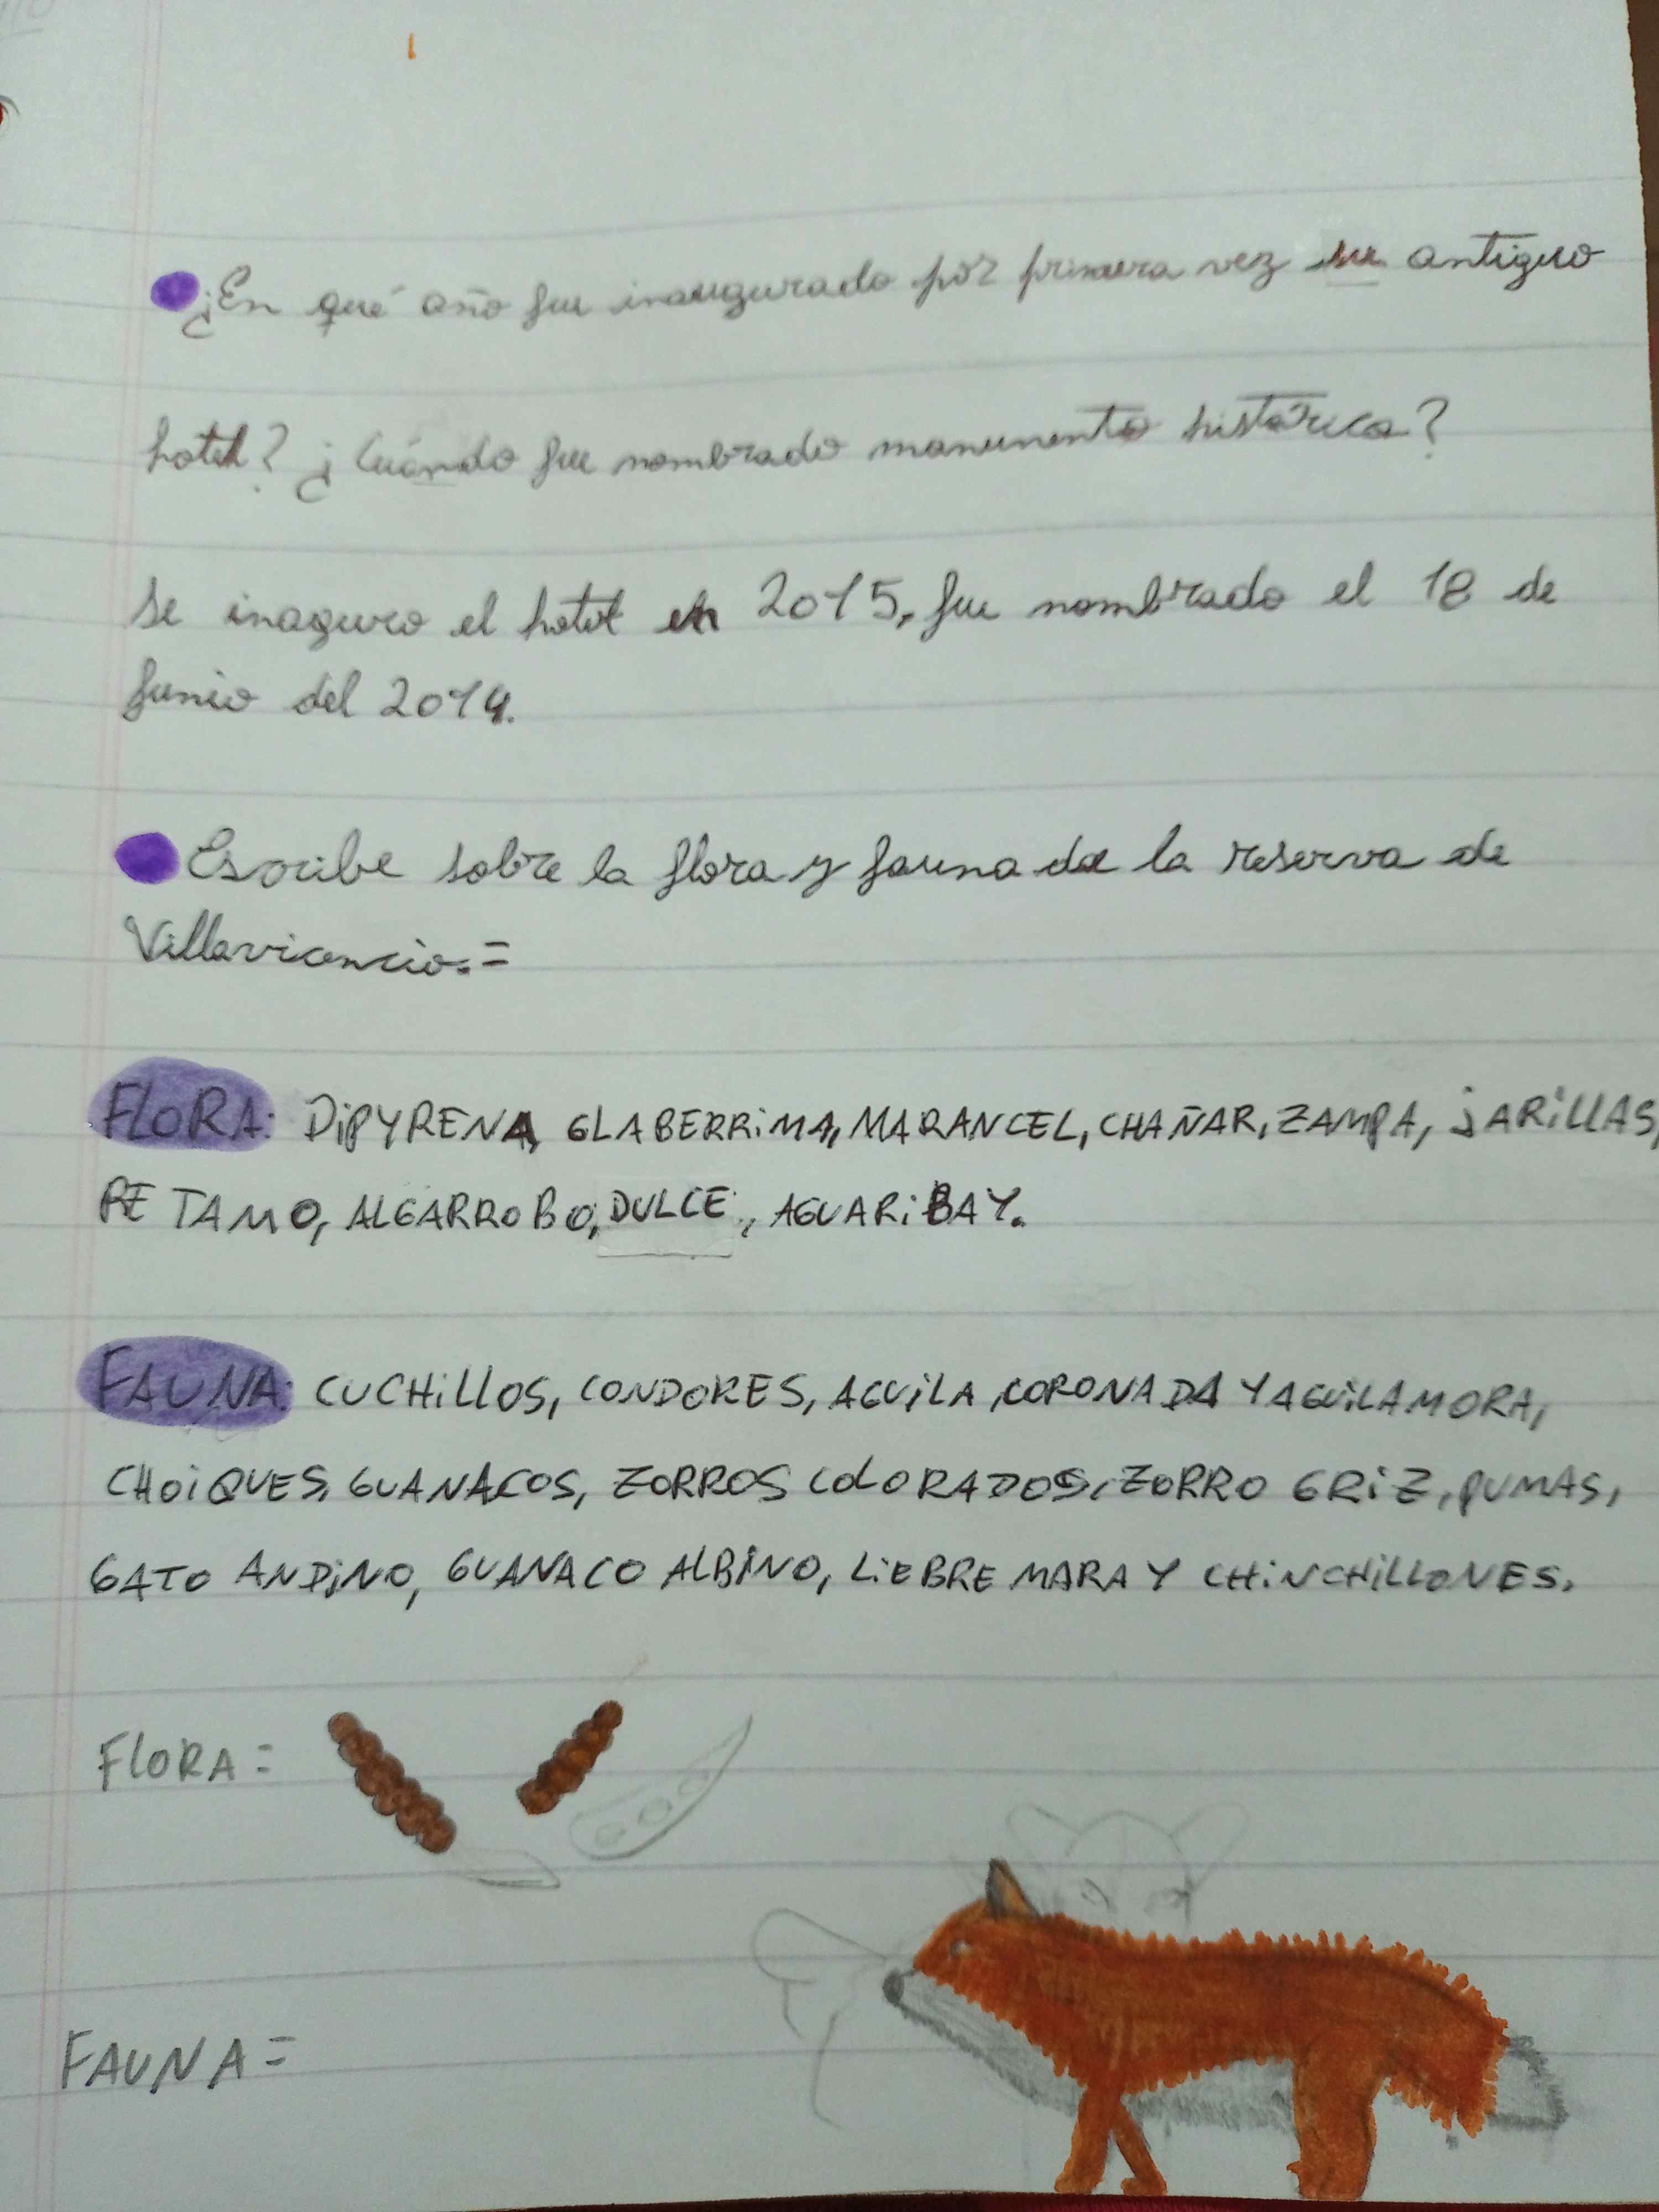 ¿En qué año fue inaugurado por primera vez su antiguo
hotel? ¿Cuándo fue nombrado monumento histórico?
se inaguro el hotel en 2015, fue nombrado el 18 de
Junio del 2014.
Escribe sobre la flora y fauna de la reserva de
Villavicencio.=
FLORA: DIPYRENA, GLABERRIMA, MARANCEL, CHAÑAR, ZAMPA, JARILLAS,
RETAMO, ALGARROBO, DULCE, AGUARIBAY.
FAUNA: CUCHILLOS, CONDORES, AGUILA, CORONADA Y AGUILA MORA,
CHOIQUES, GUANACOS, ZORROS COLORADOS, ZORRO GRIZ, PUMAS,
GATO ANDINO, GUANACO ALBINO, LIEBRE MARA Y CHINCHILLONES.
FLORA=
FAUNA=